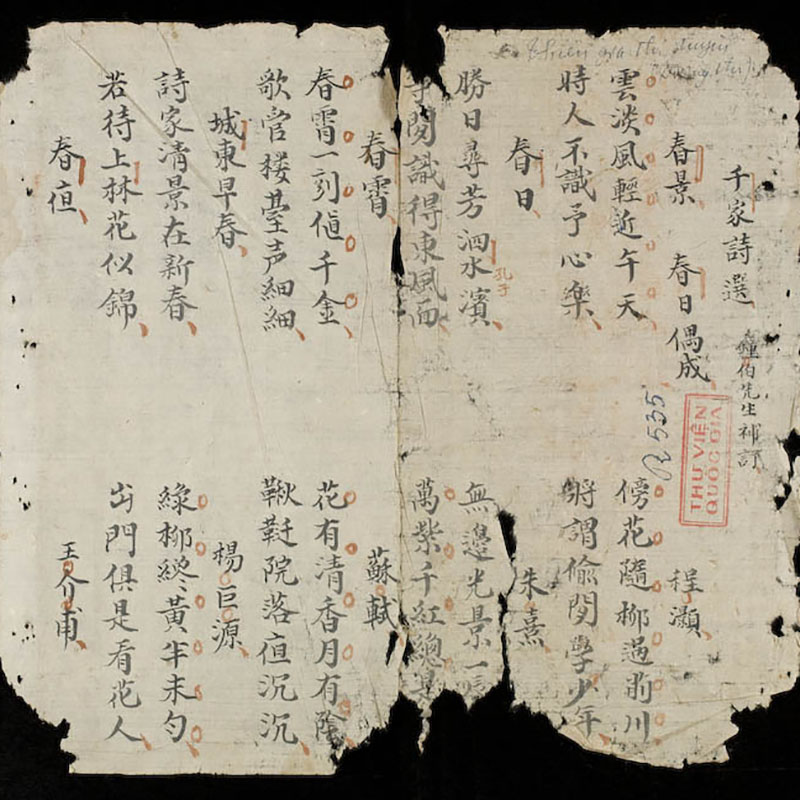 千家詩選 鍾伯先生補訂
春景 春日偶成 程灝
雲淡風輕近午天 傍花隨柳過前川
時人不識予心樂 將謂偷閑學少年
春日 朱熹
勝日尋芳泗水濱 無邊光景一時
孔子
等閑識得東風面 萬紫千紅總是
春霄 蘇軾
春霄一刻値千金 花有清香月有陰
歌管楼臺声細細 鞦韆院落夜沉沉
城東早春 楊巨源
詩家清景在新春 綠柳終〻黃半未勻
若待上林花似錦 出門俱是看花人
春夜 王介甫
R 535
THƯ VIỆN
QUỐC GIA